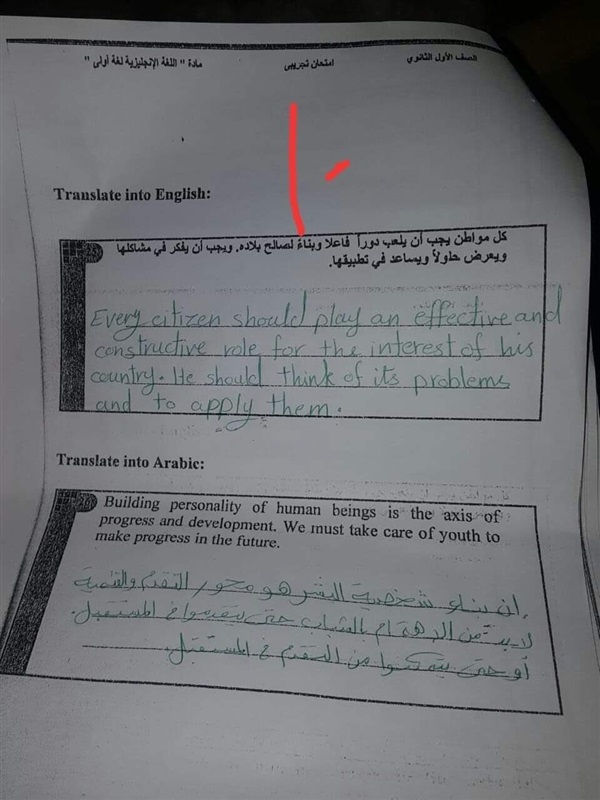 الصف الأول الثانوي امتحان تجريبى مادة " اللغة الإنجليزية لغة أولى "
Translate into English:
كل مواطن يجب أن يلعب دوراً فاعلا وبناءً لصالح بلاده. ويجب أن يفكر في مشاكلها
ويعرض حلولاً ويساعد في تطبيقها.
Every citizen should play an effective and
constructive role for the interest of his
country. He should think of its problems
and to apply them.
Translate into Arabic:
Building personality of human beings is the axis of
progress and development. We must take care of youth to
make progress in the future.
إن بناء شخصية البشر هو محور التقدم والتنمية.
لابد من الاهتمام بالشباب حتى يتقدموا في المستقبل.
أو حتى يتمكنوا من التقدم في المستقبل.